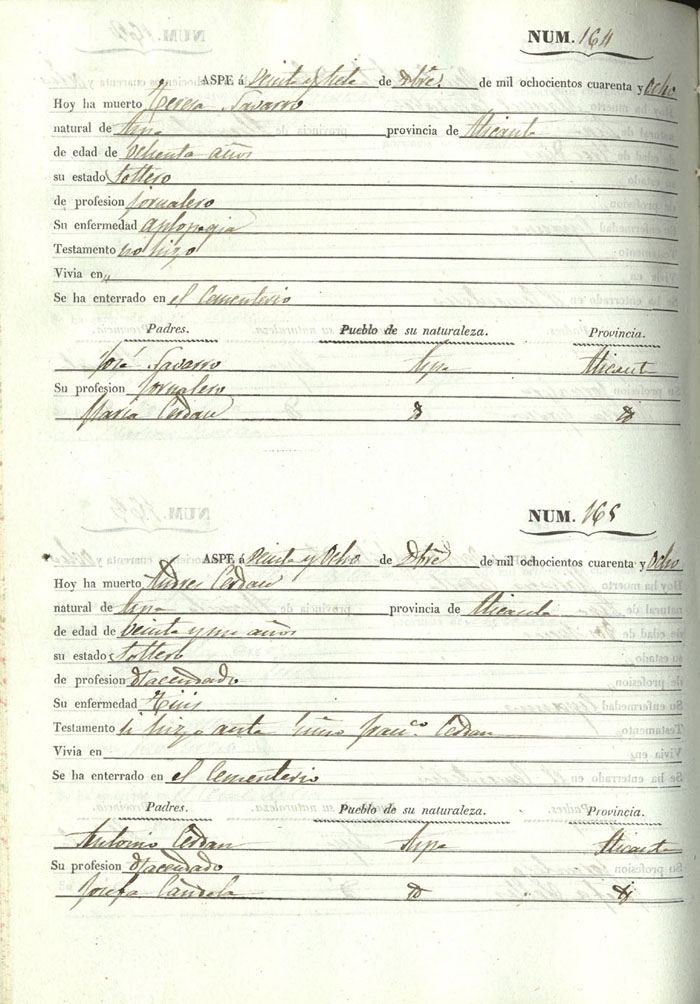 NUM. 164
ASPE á Veinta y siete de Dbre. de mil ochocientos cuarenta y ocho
Hoy ha muerto Navarro
natural de Aspe provincia de Alicante
de edad de ochenta años
su estado soltero
de profesion jornalero
Su enfermedad
Testamento no hizo
Vivia en "
Se ha enterrado en el Cementerio
Padres. Pueblo de su naturaleza. Provincia.
José Navarro Aspe Alicant
Su profesion Jornalero
Maria Cerdan
NUM. 165
ASPE á Veinta y Ocho de Dbre de mil ochocientos cuarenta y Ocho
Hoy ha muerto Andres Cerdan
natural de Aspe provincia de Alicante
de edad de veinta y un años
su estado soltero
de profesion Hacendado
Su enfermedad Tisis
Testamento si hizo ante Franco. Cerdan
Vivia en
Se ha enterrado en el Cementerio
Padres. Pueblo de su naturaleza. Provincia.
Antonio Cerdan Aspe Alicante
Su profesion Hacendado
Josefa Candela